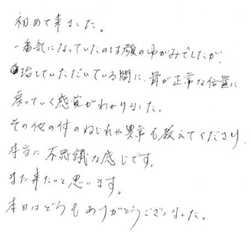 初めて来ました。
一番気になっていたのは顎のゆがみでしたが、
治していただいている間に、骨が正常な位置に
戻っていく感覚がわかりました。
その他の体のねじれや異常も教えてくださり、
本当に不思議な感じです。
また来たいと思います。
本日はどうもありがとうございました。